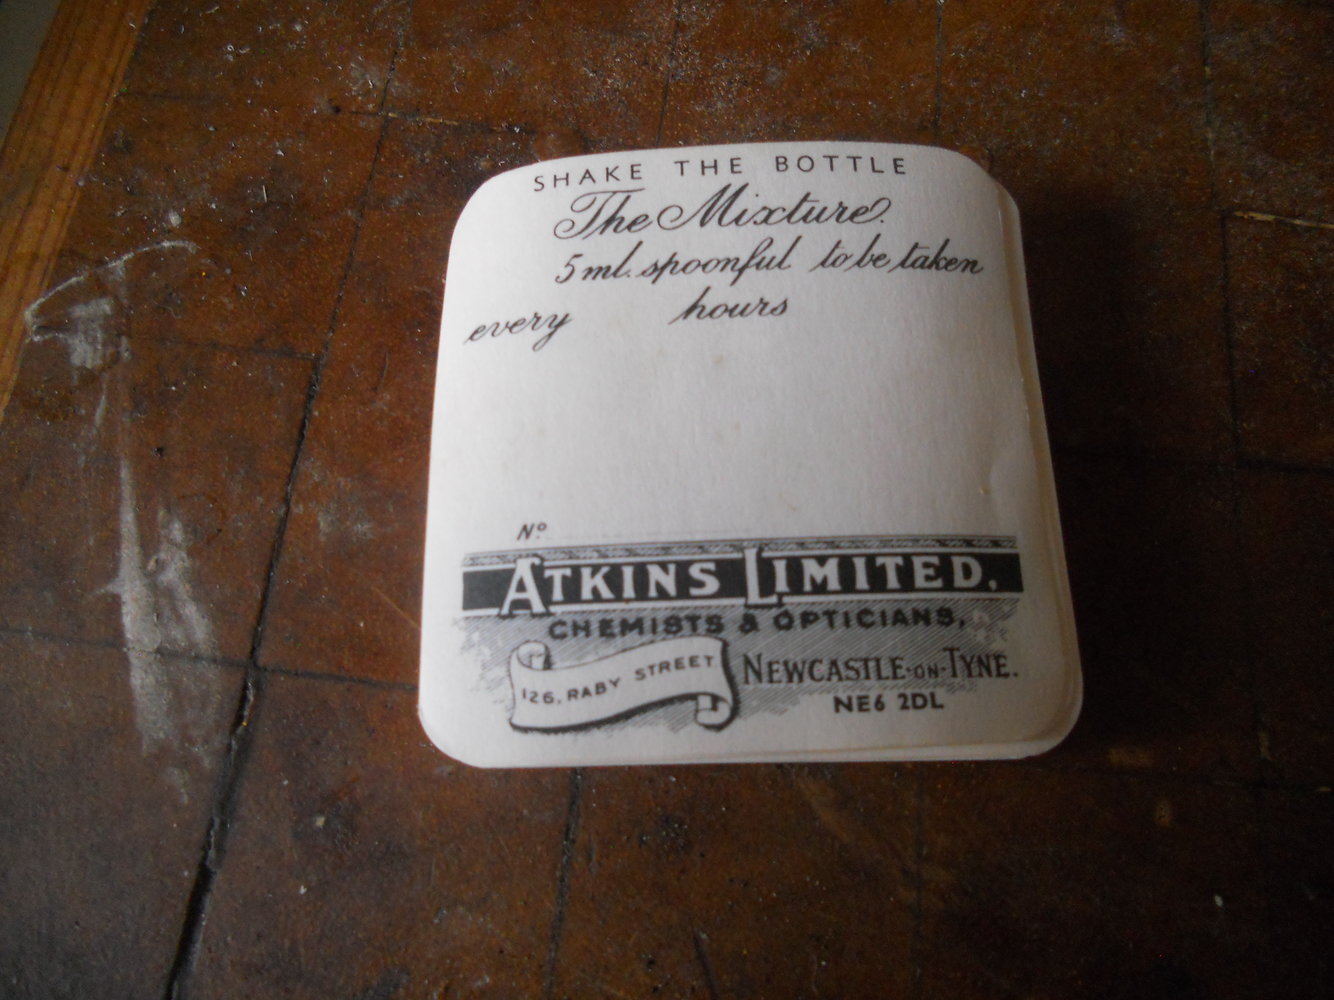 SHAKE THE BOTTLE
The Mixture.
5 ml. spoonful to be taken
every hours
Nº
ATKINS LIMITED.
CHEMISTS & OPTICIANS,
126, RABY STREET. NEWCASTLE-ON-TYNE.
NE6 2DL